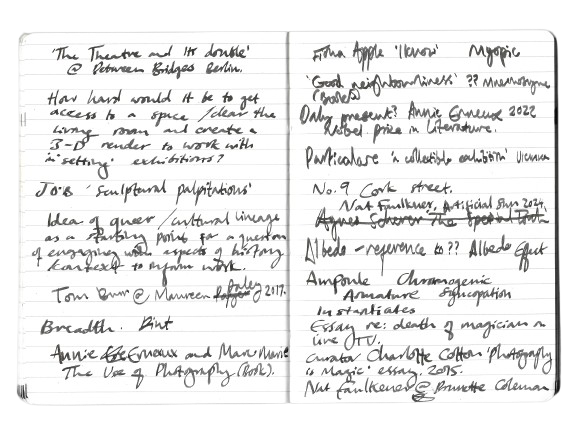 'The Theatre and its double'
@ Between Bridges Berlin.
How hard would it be to get
access to a space / clear the
living room and create a
3-D render to work with
in 'setting' exhibitions?
JOB 'sculptural palpitations'
Idea of queer / cultural lineage
as a starting point for a question
of engaging with aspects of history
& context to inform work.
Tom Burr @ Maureen Paley 2017.
Breadth.
Annie Erneaux and Marc Marie
The Use of Photography (Book).
Fiona Apple 'I Know' Myopic
'Good neighbourliness' ?? Mnemosyne
(Borders)
Daly present? Annie Erneaux 2022
Nobel prize in Literature.
Particulare 'a collectible exhibition' Vienna
No. 9 Cork street.
Nat Faulkner, Artificial Sun 2024.
Agnes Scherer The Special Truth
Albedo - reference to ?? Albedo Effect
Ampoule Chromogenic
Armature Syncopation
Instantiates
Essay re: death of magician on
live TV.
curator Charlotte Cotton 'Photography
is Magic' essay. 2015.
Nat Faulkener @ Brunette Coleman